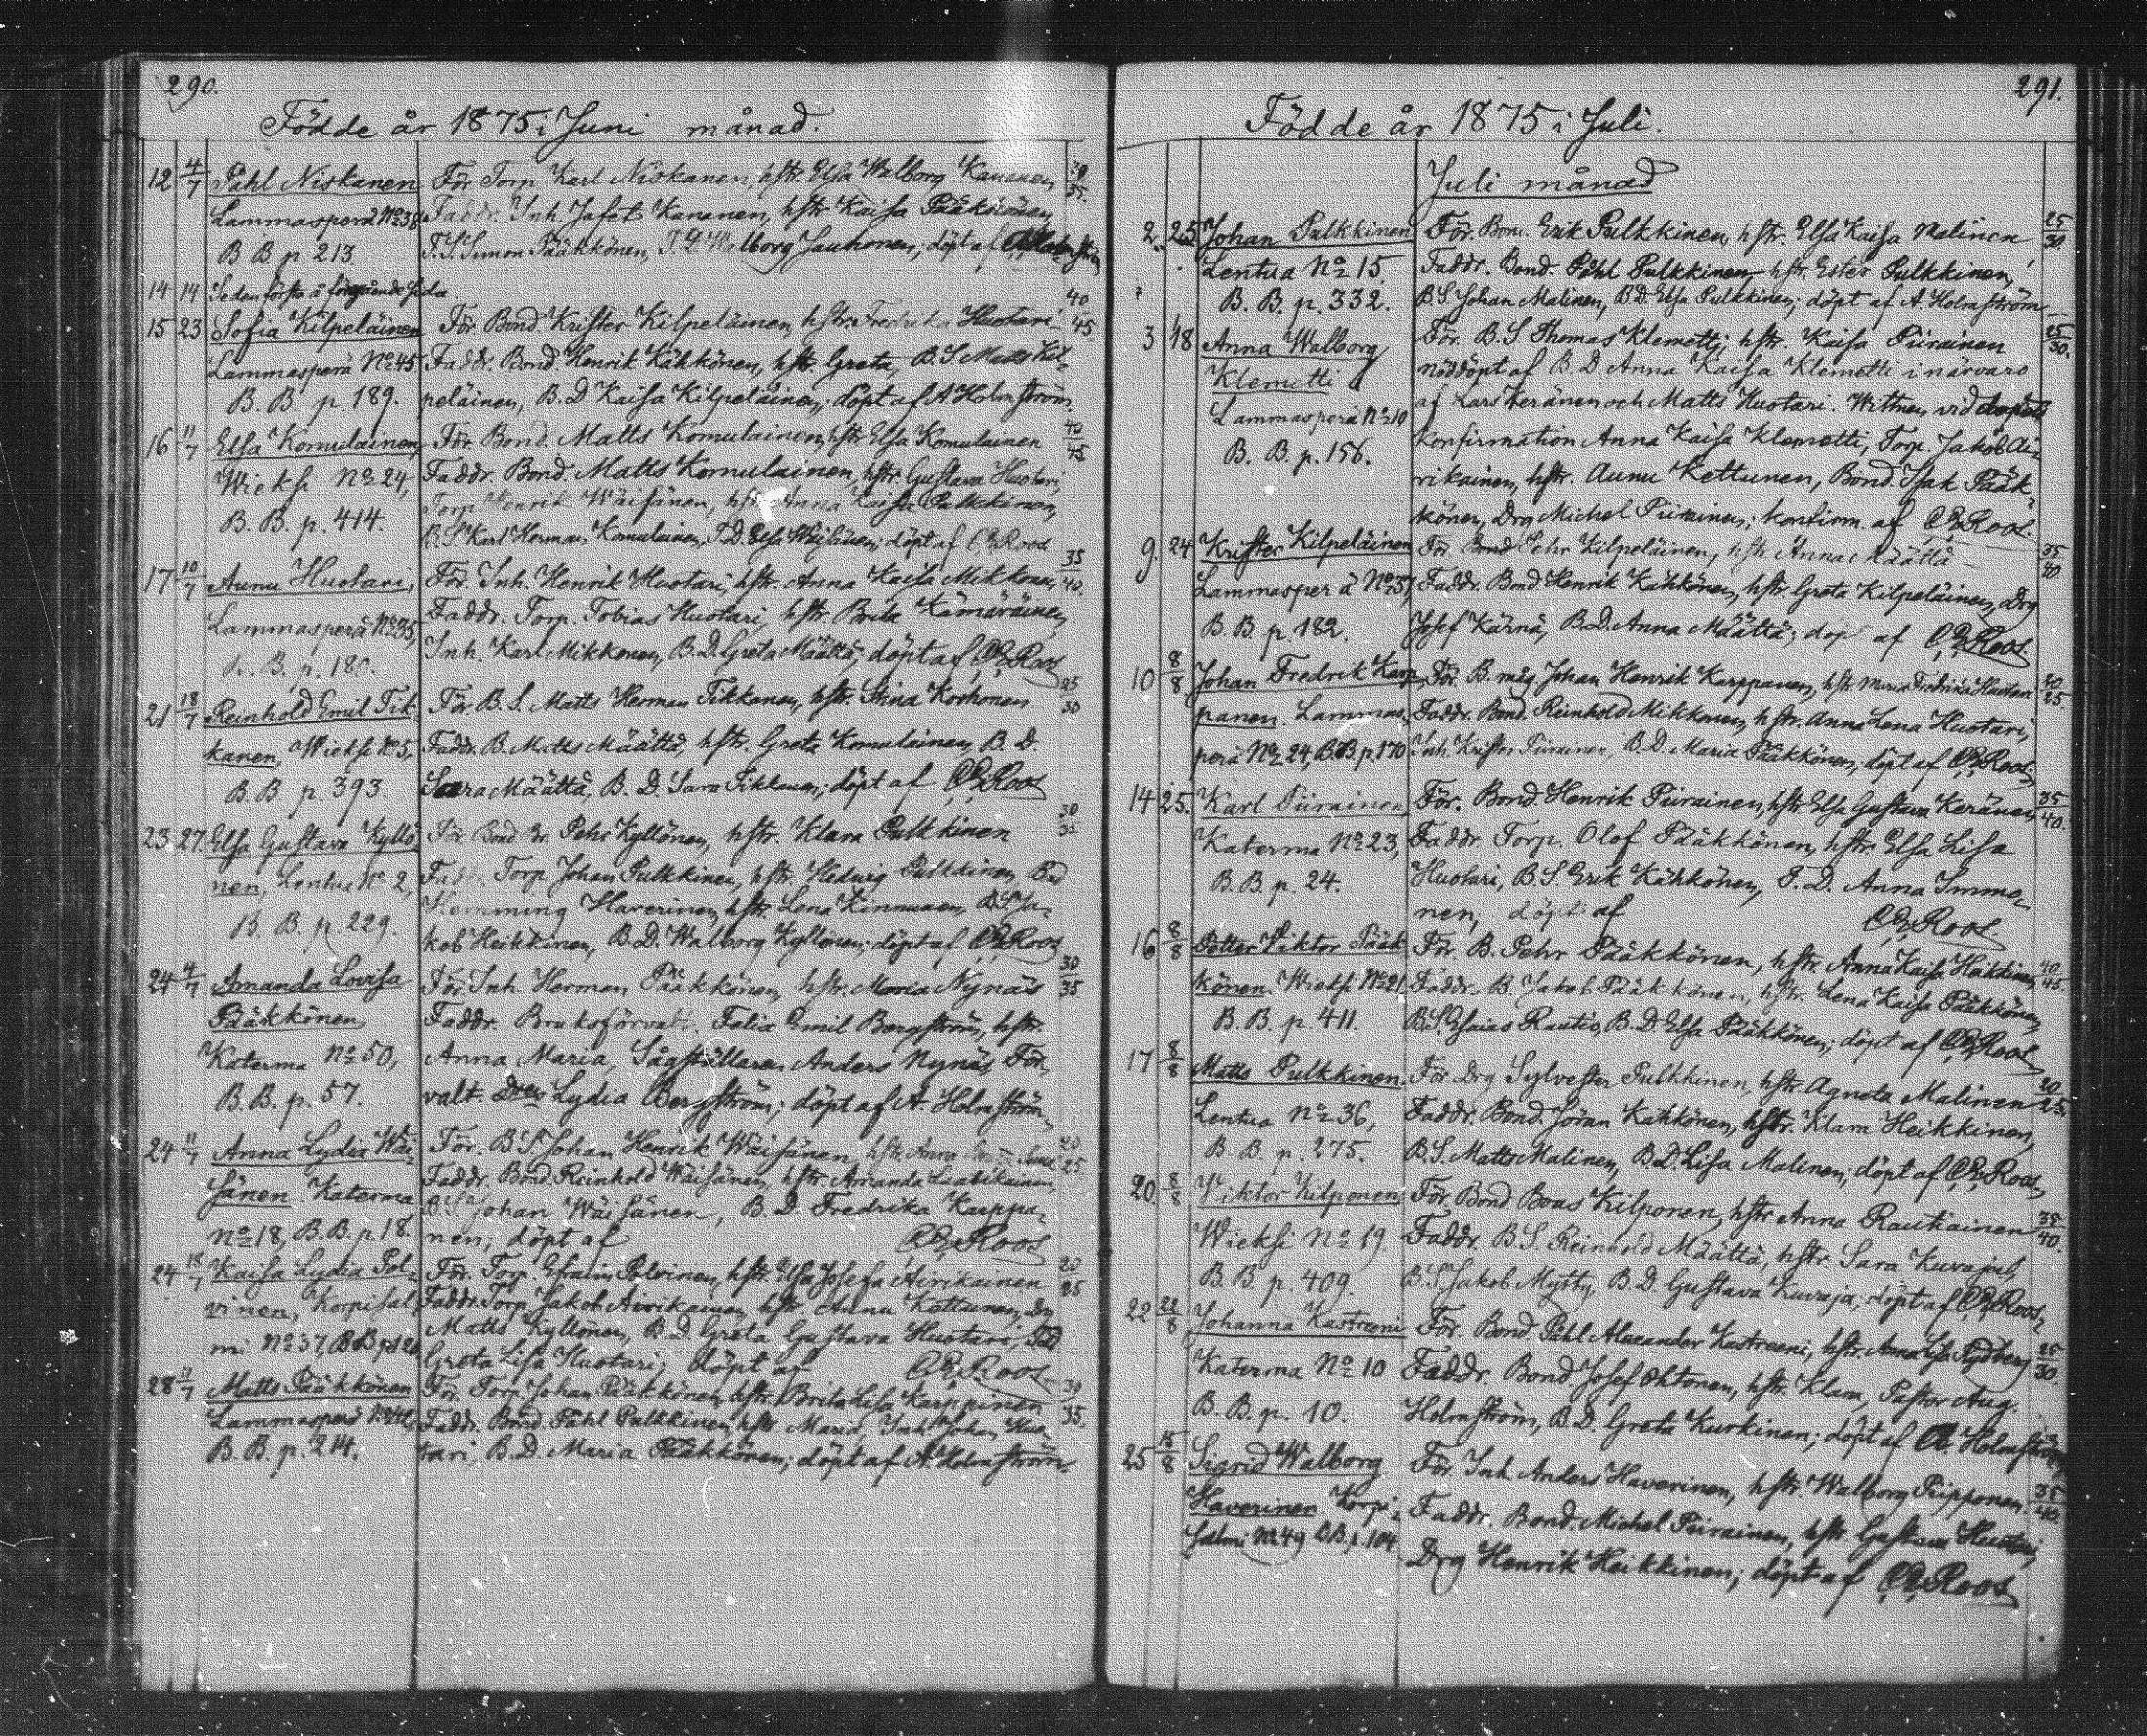 290.
Födde år 1875 i Juni månad.
12 4/7 Påhl Niskanen För Torp. Karl Niskanen, hstr. Elsa Walborg Kananen 30/35.
Lammasperä No 38 Faddr. Inh. Jafet Kananen, hstr Kaisa Pääkkönen,
B B p. 213 T. S. Simon Pääkkönen, Walborg Jauhonen; döpt af
14 14 Se den första å föregående sida
15 23 Sofia Kilpeläinen För Bond Krister Kilpeläinen, hstr. Fredrika Huotari 40/45
Lammasperä No 45 Faddr. Bond. Henrik Kähkönen, hstr. Greta, B. S. Matts Kil-
B. B. p. 189. peläinen, B. D Kaisa Kilpeläinen; döpt af A Holmström.
16 11/7 Elsa Komulainen, För. Bond. Matts Komulainen, hstr Elsa Komulainen 40/45
Wieksi No 24, Faddr. Bond. Matts Komulainen, hstr. Gustava Huotari,
Torp Henrik Wäisänen, hstr. Anna Kaisa Pulkkinen,
B. B. p. 414. B. S. Karl Herman Komulainen, T. D. Elsa Wäisänen; döpt af C Roos
17 10/7 Aunu Huotari, För. Inh. Henrik Huotari, hstr. Anna Kaisa Mikkonen, 35/40.
Lammasperä No 35, Faddr. Torp. Tobias Huotari, hstr Brita Kämäräinen,
B. B. p. 180. Inh. Karl Mikkonen, B. D. Greta Määttä; döpt af Roos
21 18/7 Reinhold Emil Tik- För. B. S. Matts Herman Tikkanen, hstr. Stina Korhonen 25/30
kanen, Wieksi No 5, Faddr. B. Matts Määttä, hstr. Greta Komulainen, B. D.
B. B p. 393. Sara Määttä, B. D. Sara Tikkanen; döpt af Roos
23 27. Elsa Gustava Kyllö- För Bond Pehr Kyllönen, hstr. Klara Pulkkinen 30/35
nen, Lentua No 2, Faddr. Torp. Johan Pulkkinen, hstr. Hedvig Pulkkinen, Bd
Hemming Haverinen, hstr. Lena Kinnunen, B. S. Ja-
B. B. p. 229. kob Heikkinen, B. D. Walborg Kyllönen; döpt af Roos
24 4/7 Amanda Lovisa För Inh. Herman Pääkkönen, hstr. Maria Nynäs 30/35
Pääkkönen Faddr. Bruksförvalt. Felix Emil Bergström, hstr.
Katerma No 50, Anna Maria, Sågställaren Anders Nynäs, För-
B. B. p. 57. valt. Dtter Lydia Bergström; döpt af A. Holmström
24 11/7 Anna Lydia Wäi- För. B. S. Johan Henrik Wäisänen, hstr Anna 20/25
sänen Katerma Faddr. Bond. Reinhold Wäisänen, hstr Amanda
B S Johan Wäisänen, B. D. Fredrika Karppa-
No 18, B B. p 18. nen; döpt af Roos
24 18/7 Kaisa Lydia Pol- För. Torp. Efraim Polvinen, hstr. Elsa Josefa Airikainen 20/25
vinen, Korpisal- Faddr. Torp. Jakob Airikainen, hstr Aunu Kettunen, Drg
Matts Kyllönen, B D. Greta Gustava Huotari,
mi No 37, B B p 121 Greta Lisa Huotari; döpt af Roos
28 11/7 Matts Pääkkönen För. Torp. Johan Pääkkönen, hstr. Brita Lisa Karppinen 30/35.
Lammasperä Faddr. Bond. Påhl Pulkkinen, hstr Maria, Inh. Johan Huo-
B. B. p. 214. tari, B. D. Maria Pääkkönen; döpt af A Holmström.
291.
Födde år 1875 i Juli.
Juli månad
2. 25 Johan Pulkkinen För. Bond. Erik Pulkkinen, hstr. Elsa Kaisa Malinen 25/30
Lentua No 15 Faddr. Bond. Påhl Pulkkinen, hstr. Ester Pulkkinen,
B. B. p. 332. B. S. Johan Malinen, B D. Elsa Pulkkinen; döpt af A. Holmström
3 18 Anna Walborg För. B. S. Thomas Klemetti; hstr. Kaisa Piirainen 25/30.
Klemetti nöddöpt af B. D. Anna Kaisa Klemetti i närvaro
af Lars Keränen och Matts Huotari. Wittnen vid dopets
Lammasperä No 19 konfirmation Anna Kaisa Klemetti, Torp. Jakob Ai-
B. B. p. 156. rikainen, hstr. Aunu Kettunen, Bond. Isak Pääk-
könen, Drg Michel Piirainen; konfirm. af Roos.
9. 24 Krister Kilpeläinen För Bond Pehr Kilpeläinen, hstr Anna Määttä 35/40.
Lammasperä No 37 Faddr. Bond Henrik Kähkönen, hstr. Greta Kilpeläinen, Drg
B. B. p. 182. Josef Kärnä, B. D. Anna Määttä; döpt af Roos
10 8/8 Johan Fredrik Karp- För. B. måg Johan Henrik Karppanen, hstr Maria Fredrika Huotari 20/25.
panen. Lammas- Faddr. Bond. Reinhold Mikkonen, hstr. Anna Lena Huotari,
perä No 24, B. B. p. 170 Inh. Krister Piirainen, B. D. Maria Pääkkönen, döpt af Roos,
14 25. Karl Piirainen För. Bond. Henrik Piirainen, hstr Elsa Gustava Keränen 35/40.
Katerma No 23, Faddr. Torp. Olof Pääkkönen, hstr. Elsa Lisa
B. B p. 24. Huotari, B. S. Erik Kähkönen, T. D. Anna Immo-
nen; döpt af Roos
16 8/8 Petter Viktor Pääk- För. B. Pehr Pääkkönen, hstr. Anna Kaisa Heikkinen 40/45.
könen. Wieksi No 21 Faddr. B. Jakob Pääkkönen, hstr. Lena Kaisa Pääkkönen,
B. B. p. 411. B. S. Esaias Rautio, B. D Elsa Pääkkönen; döpt af Roos
17 8/8 Matts Pulkkinen. För Drg Sylvester Pulkkinen, hstr. Agneta Malinen 20/25.
Lentua No 36, Faddr. Bond. Jöran Kähkönen, hstr. Klara Heikkinen,
B. B. p. 275. B. S. Matts Malinen, B. D. Lisa Malinen; döpt af Roos
20. 8/8 Viktor Kilponen För. Bond Boas Kilponen, hstr Anna Rautiainen 35/40.
Wieksi No 19 Faddr. B. S. Reinhold Määttä, hstr. Sara Kuvaja,
B. B p. 409. B. S. Jakob Mytty, B. D. Gustava Kuvaja; döpt af Roos,
22 22/8 Johanna Kastreeni För. Bond. Påhl Alexander Kastreeni, hstr. Anna Lisa Nydberg 25/30.
Katerma No 10 Faddr. Bond Josef Oktonen, hstr. Klara, Pastor Aug.
B. B. p. 10. Holmström, B. D. Greta Kurkinen; döpt af A Holmström
25 15/8 Sigrid Walborg För. Inh. Anders Haverinen, hstr. Walborg Piipponen. 35/40.
Haverinen Korpi- Faddr. Bond. Michel Piirainen, hstr Gustava Huotari,
salmi No 49 B B. p. 104 Drg Henrik Heikkinen; döpt af Roos